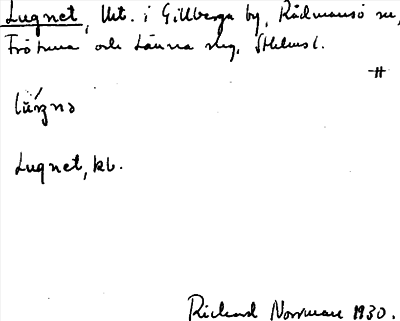 Lugnet, lht. i Gillberga by, Rådmansö sn,
Frötuna och Länna skg, Sthlms l.
#
Lugnet, kl.
Richard Norrman 1930.